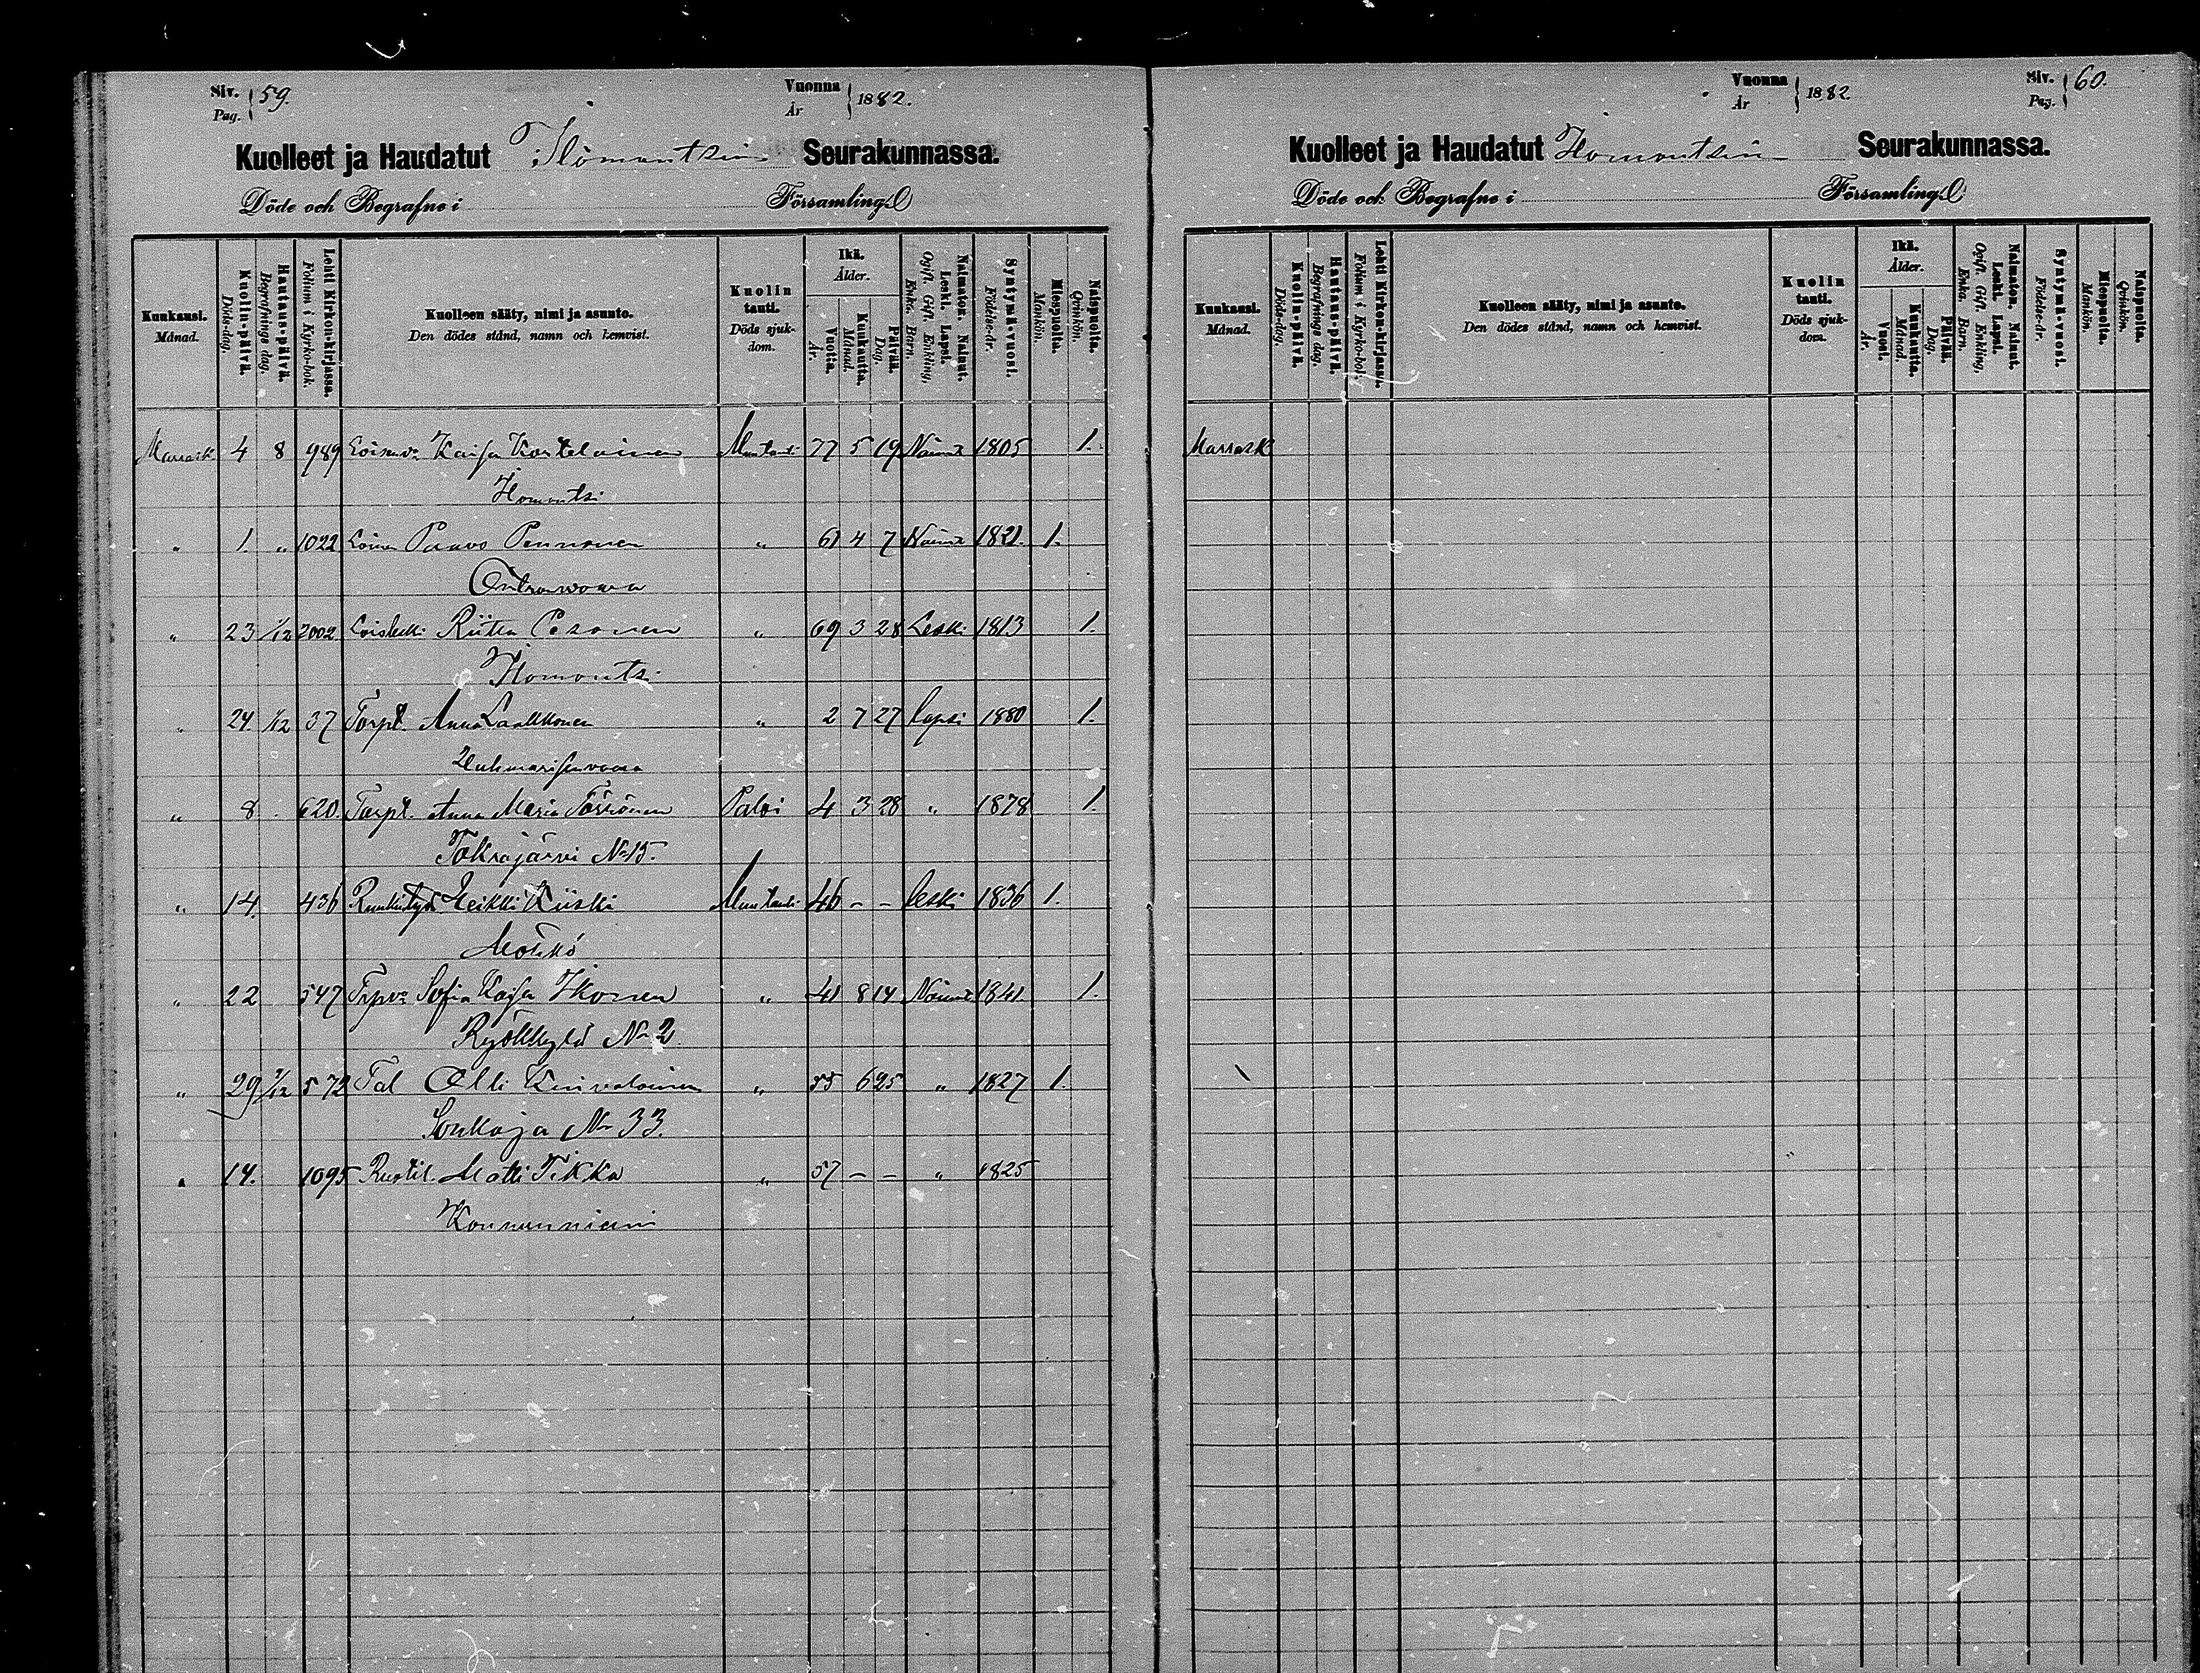 Siv. Pag. 59. Vuonna År 1882.
Kuolleet ja Haudatut Ilomantsin Seurakunnassa.
Döde och Begrafne i Församling
Kuukausi. Månad. Kuolin-päivä. Döds-dag. Hautaus-päivä. Begrafnings dag. Lehti Kirkon-kirjassa. Folium i Kyrko-bok. Kuolleen sääty, nimi ja asunto. Den dödes stånd, namn och hemvist. Kuolin tauti. Döds sjukdom. Ikä. Ålder. Vuotta. År. Kuukautta. Månad. Päivää. Dag. Naimaton. Nainut. Leski. Lapsi. Ogift. Gift. Enkling, Enka. Barn. Syntymä-vuosi. Födelse-år. Miespuolta. Mankön. Naispuolta. Qvinkön.
Marrask 4 8 989 Loisenva Kaisa Kortelainen Muu tauti 77 5 19 Nainut 1805 1.
Ilomantsi
" 1. " 1022 Loinen Paavo Pennonen " 61 4 7 Nainut 1821. 1.
Ontronwaara
" 23 1/12 2002 Loisleski Riitta Pesonen " 69 3 28 Leski 1813 1.
Ilomantsi
" 24. 1/12 37 Torpt. Anna Laakkonen " 2 7 27 lapsi 1880 1.
" 8 620. Torpt. Anna Maria Törrönen Polvi 4 3 28 " 1878 1.
Tokrajärvi No 15.
" 14. 436 Heikki Kiiski Muu tauti 46 - - leski 1836 1.
Möhkö
" 22 547 Trpva Sofia Kaisa Ikonen " 41 8 14 Nainut 1841. 1.
Ryökkylä No 2.
" 29 572 Tal Olli Kinvalainen " 55 6 25 " 1827 1.
Sonkaja No 33.
" 14. 1095 Rustit. Matti Tikka " 57 - - " 1825
Konnunniemi
Vuonna År 1882 Siv. Pag. 60.
Kuolleet ja Haudatut Ilomantsin Seurakunnassa.
Döde och Begrafne i Församling
Kuukausi. Månad. Kuolin-päivä. Döds-dag. Hautaus-päivä. Begrafnings dag. Lehti Kirkon-kirjassa. Folium i Kyrko-bok. Kuolleen sääty, nimi ja asunto. Den dödes stånd, namn och hemvist. Kuolin tauti. Döds sjukdom. Ikä. Ålder. Vuosi. År. Kuukautta. Månad. Päivää. Dag. Naimaton. Nainut. Leski. Lapsi. Ogift. Gift. Enkling, Enka. Barn. Syntymä-vuosi. Födelse-år. Miespuolta. Mankön. Naispuolta. Qvinkön.
Marrask